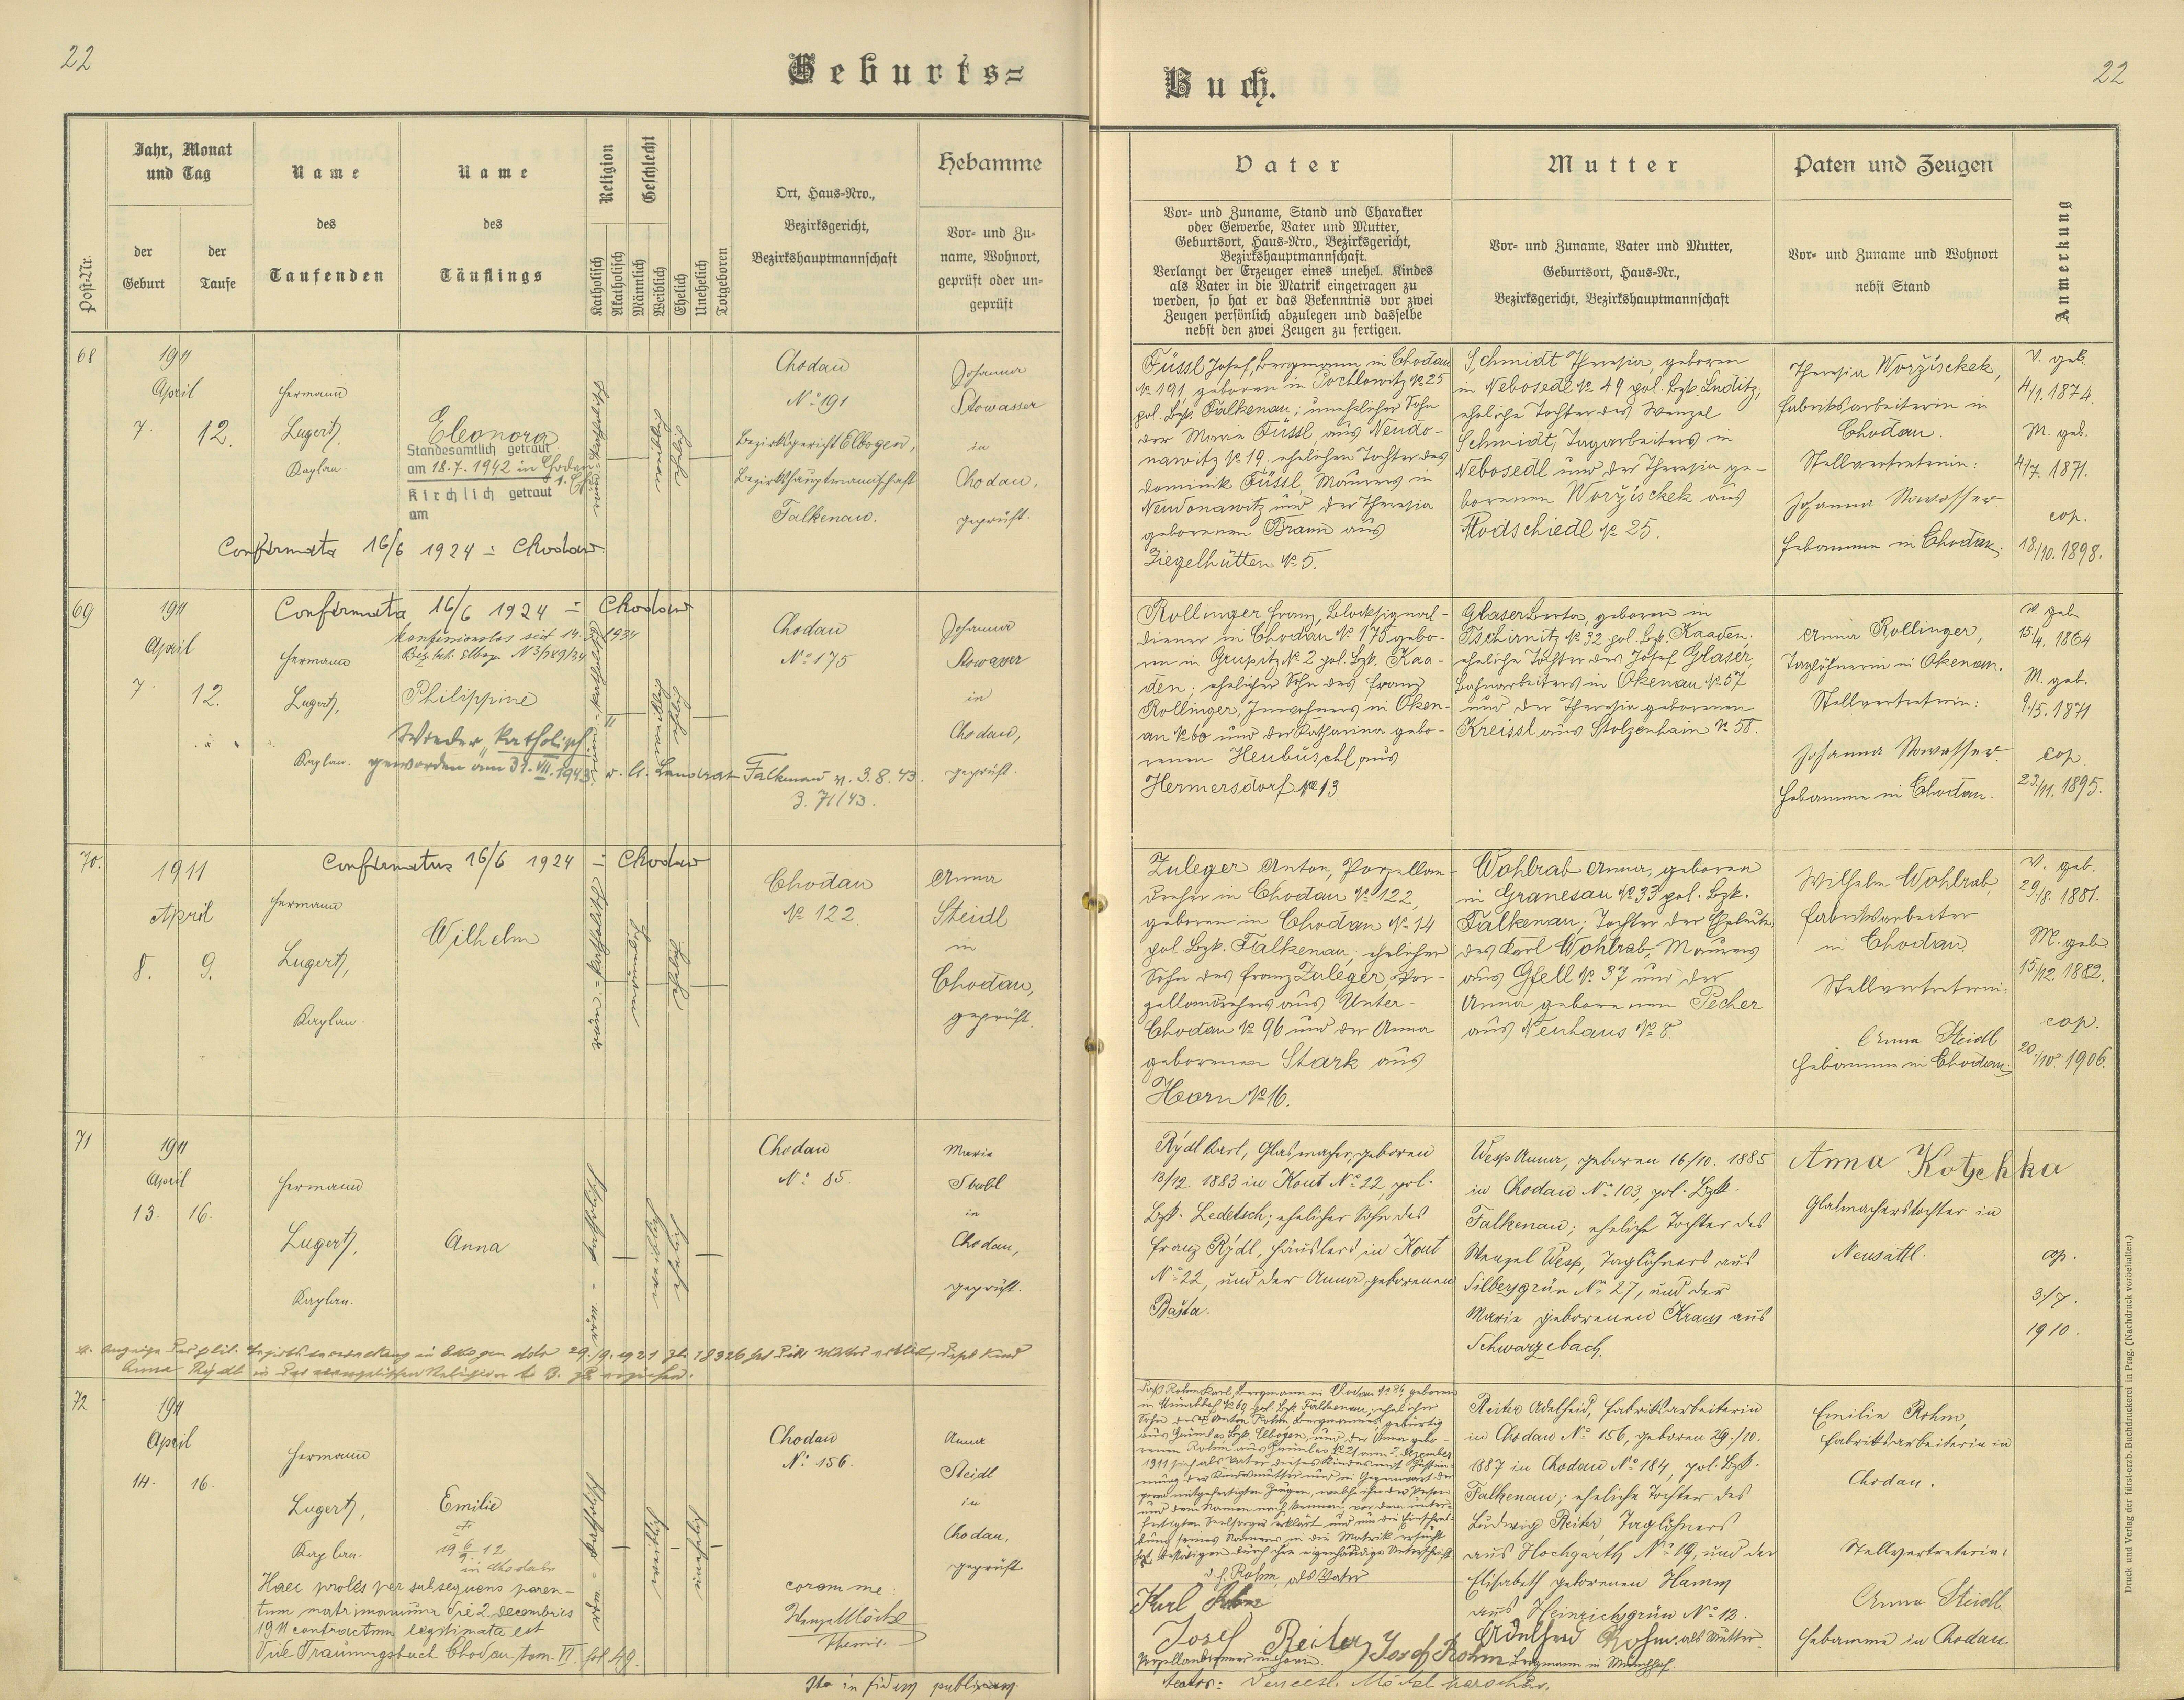 22
Geburts=
Buch.
22
Post-Nr.
Jahr, Monat
und Tag
der
Geburt
der
Taufe
Name
des
Taufenden
Name
des
Täuflings
Religion
Katholisch
Akatholisch
Geschlecht
Männlich
Weiblich
Ehelich
Unehelich
Totgeboren
Ort, Haus=Nro.,
Bezirksgericht,
Bezirkshauptmannschaft
Hebamme
Vor= und Zu=
name, Wohnort,
geprüft oder un=
geprüft
Vater
Vor= und Zuname, Stand und Charakter
oder Gewerbe, Vater und Mutter,
Geburtsort, Haus=Nro., Bezirksgericht,
Bezirkshauptmannschaft.
Verlangt der Erzeuger eines unehel. Kindes
als Vater in die Matrik eingetragen zu
werden, so hat er das Bekenntnis vor zwei
Zeugen persönlich abzulegen und dasselbe
nebst den zwei Zeugen zu fertigen.
Mutter
Vor= und Zuname, Vater und Mutter,
Geburtsort, Haus=Nr.,
Bezirksgericht, Bezirkshauptmannschaft
Paten und Zeugen
Vor= und Zuname und Wohnort
nebst Stand
Anmerkung
68
1911
April
7.
12.
Hermann
Lugert,
Kaplan.
Eleonora
Standesamtlich getraut
am 18.7.1942 in Chodau
Kirchlich getraut
am
Confirmata 16/6 1924 : Chodau
röm.=katholisch
weiblich
ehelich
Chodau
No 191
Bezirksgericht Elbogen,
Bezirkshauptmannschaft
Falkenau.
Johanna
Stowasser
in
Chodau,
geprüft.
Füssl Josef, Bergmann in Chodau
No 191, geboren in Pochlowitz No 25
pol. Bzk. Falkenau; unehelicher Sohn
der Marie Füssl aus Neudo-
nawitz No 19. ehelichen Tochter des
Dominik Füssl, Maurers in
Neudonawitz und der Theresia
geborenen Braun aus
Ziegelhütten No 5.
Schmidt Theresia, geboren
in Nebosedl No 49 pol. Bzk. Luditz;
eheliche Tochter des Wenzel
Schmidt, Tagarbeiters in
Nebosedl und der Theresia ge-
borenen Worzischek aus
Modschiedl No 25.
Theresia Worzischek,
Fabriksarbeiterin in
Chodau.
Stellvertreterin:
Johanna Stowasser
Hebamme in Chodau.
V. geb.
4/1. 1874.
M. geb.
4/7. 1871.
cop.
18/10. 1898.
69
1911
April
7.
12.
Confirmata 16/6 1924 : Chodau
konfessionslos seit 14. 1934
Hermann
Lugert,
Kaplan.
Philippine
Wieder "katholisch"
geworden am 31.VII.1943. Landrat Falkenau v. 3.8.43.
Z. 71/43.
röm.=katholisch
weiblich
ehelich
Chodau
No 175
Johanna
Stowasser
in
Chodau,
geprüft.
Rollinger Franz, Blocksignal-
diener in Chodau No 175 gebo-
ren in Grupitz No 2 pol. Bzk. Kaa-
den; ehelicher Sohn des Franz
Rollinger, Inwohners in Oken-
au No 60 und der Katharina gebo-
renen Heubüschl aus
Hermersdorf No 13.
Glaser Berta, geboren in
Tschirnitz No 32 pol. Bzk. Kaaden.
eheliche Tochter des Josef Glaser,
Bahnarbeiters in Okenau No 57
und der Theresia geborenen
Kreissl aus Stolzenhain No 58.
Anna Rollinger,
Taglöhnerin in Okenau.
Stellvertreterin:
Johanna Stowasser
Hebamme in Chodau.
V. geb.
15/4. 1864
M. geb.
9/5. 1871
cop.
23/11. 1895.
70.
1911
April
8.
9.
Confirmatus 16/6 1924 : Chodau
Hermann
Lugert,
Kaplan.
Wilhelm
röm.=katholisch
männlich
ehelich
Chodau
No 122
Anna
Steidl
in
Chodau,
geprüft.
Zuleger Anton, Porzellan-
dreher in Chodau No 122,
geboren in Chodau No 14
pol. Bzk. Falkenau; ehelicher
Sohn des Franz Zuleger, Por-
zellandrehers aus Unter-
Chodau No 96 und der Anna
geborenen Stark aus
Horn No 16.
Wohlrab Anna, geboren
in Granesau No 33 pol. Bzk.
Falkenau; Tochter der Eheleute
des Karl Wohlrab, Maurers
aus Gfell No 37 und der
Anna geborenen Pecher
aus Neuhaus No 8.
Wilhelm Wohlrab
Fabriksarbeiter
in Chodau
Stellvertreterin:
Anna Steidl
Hebamme in Chodau.
V. geb.
29/8. 1881.
M. geb.
15/12. 1882.
cop.
20/10. 1906.
71
1911
April
13.
16.
Hermann
Lugert,
Kaplan.
Anna
röm. - katholisch
weiblich
ehelich
Chodau
No 85.
Marie
Stabl
in
Chodau,
geprüft.
Rýdl Karl, Glasmacher, geboren
13/12. 1883 in Kout No 22, pol.
Bzk. Ledetsch; ehelicher Sohn des
Franz Rýdl, Häuslers in Kout
No 22, und der Anna geborenen
Bašta.
Wesp Anna, geboren 16/10. 1885
in Chodau No 103, pol. Bzk.
Falkenau; eheliche Tochter des
Wenzel Wesp, Taglöhners aus
Silbersgrün No 27, und der
Marie geborenen Kraus aus
Schwarzebach.
Anna Kotschka
Glasmacherstochter in
Neusattl.
cop.
3./7.
1910.
Anna Rýdl in der evangelischen Religion
72
1911
April
14.
16.
Hermann
Lugert,
Kaplan.
Emilie
in Chodau
Haec proles per subsequens paren-
tum matrimonium die 2. decembris
1911 contractum legitimata est
Vide Trauungsbuch Chodau tom. VI. fol 49.
röm. - katholisch
weiblich
unehelich
Chodau
No 156.
coram me:
Anna
Steidl
in
Chodau,
geprüft
Daß Rohm Karl, Bergmann in Chodau No 86, geboren
in Münchhof No 60, pol. Bzk. Falkenau; ehelicher
1911 sich als Vater dieses Kindes mit Zustim-
mung der Kindesmutter und in Gegenwart der
als Vater
Karl Rohm
Josef Reiter
Josef Rohm Bergmann in Münchhof.
Reiter Adelheid, Fabriksarbeiterin
in Chodau No 156, geboren 29./10.
1887 in Chodau No 184, pol. Bzk.
Falkenau; eheliche Tochter des
Ludwig Reiter, Taglöhners
aus Hochgarth No 19, und der
Elisabeth geborenen Hamm
aus Heinrichsgrün No 12.
Adelheid Rohm als Mutter.
Emilie Rohm,
Fabriksarbeiterin in
Chodau.
Stellvertreterin:
Anna Steidl
Hebamme in Chodau.
Ita in fidem publicam
Druck und Verlag der fürst-erzb. Buchdruckerei in Prag. (Nachdruck vorbehalten.)